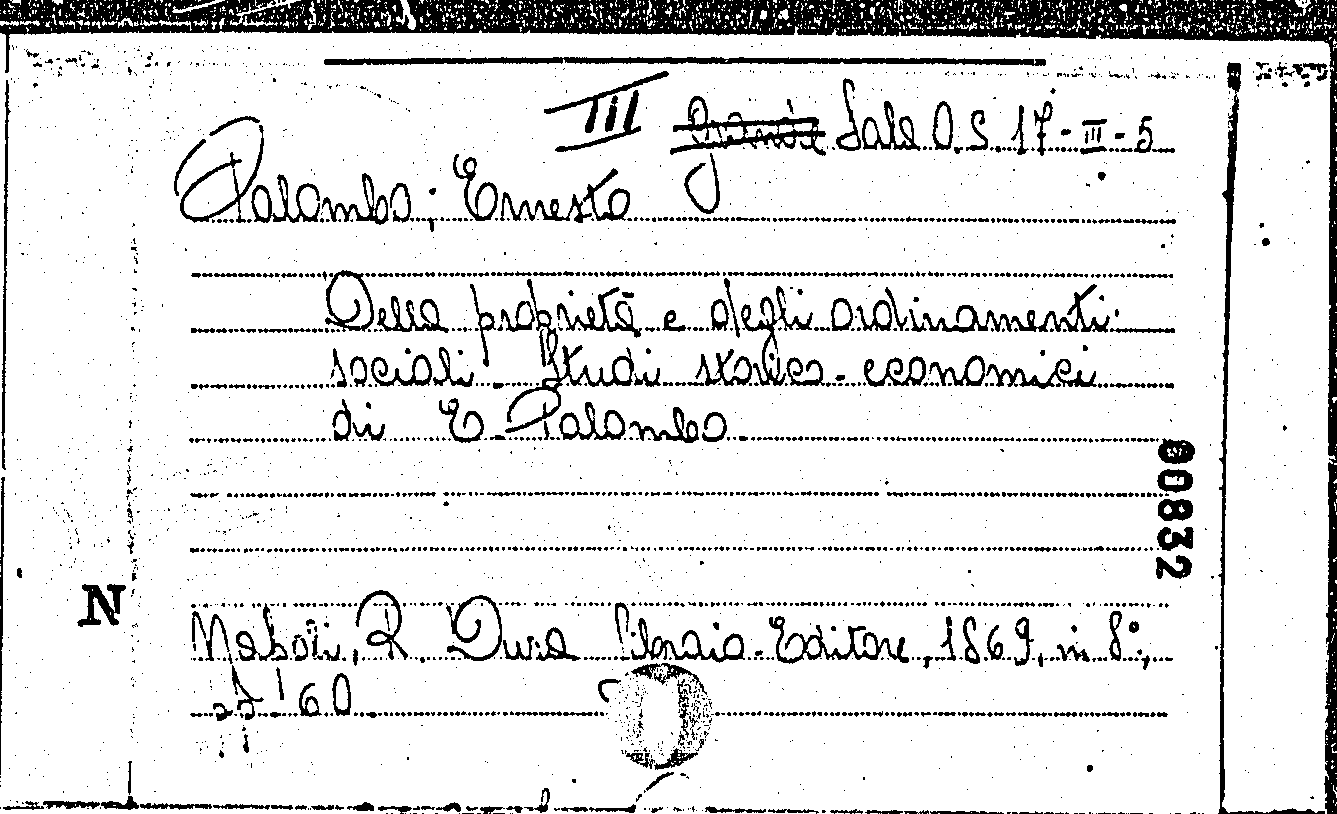 III Grande Sala O.S. 17-III-5
Palomba, Ernesto
Della proprietà e degli ordinamenti
sociali. Studi storico-economici
di E. Palomba.
00832
N
Napoli, R. Dura libraio-Editore, 1869, in 8°,
pp. 60